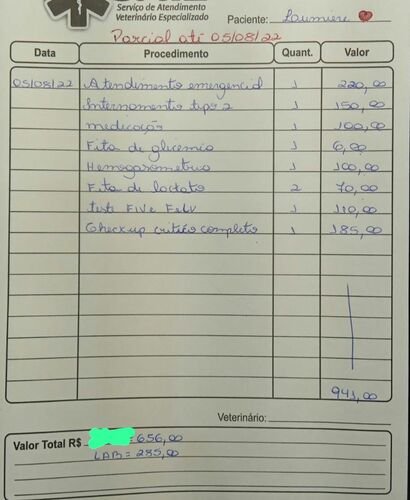 Serviço de Atendimento
Veterinário Especializado
Paciente: Loumiere
Parcial até 05/08/22
Data Procedimento Quant. Valor
05/08/22 Atendimento emergencial 1 220,00
Internamento tipo 2 1 150,00
medicação 1 100,00
Fita de glicemia 1 6,00
Hemogasometria 1 100,00
Fita de lactato 2 70,00
teste FIV e FeLV 1 110,00
Check up critico completo 1 185,00
941,00
Veterinário:
Valor Total R$ = 656,00
LAB = 285,00